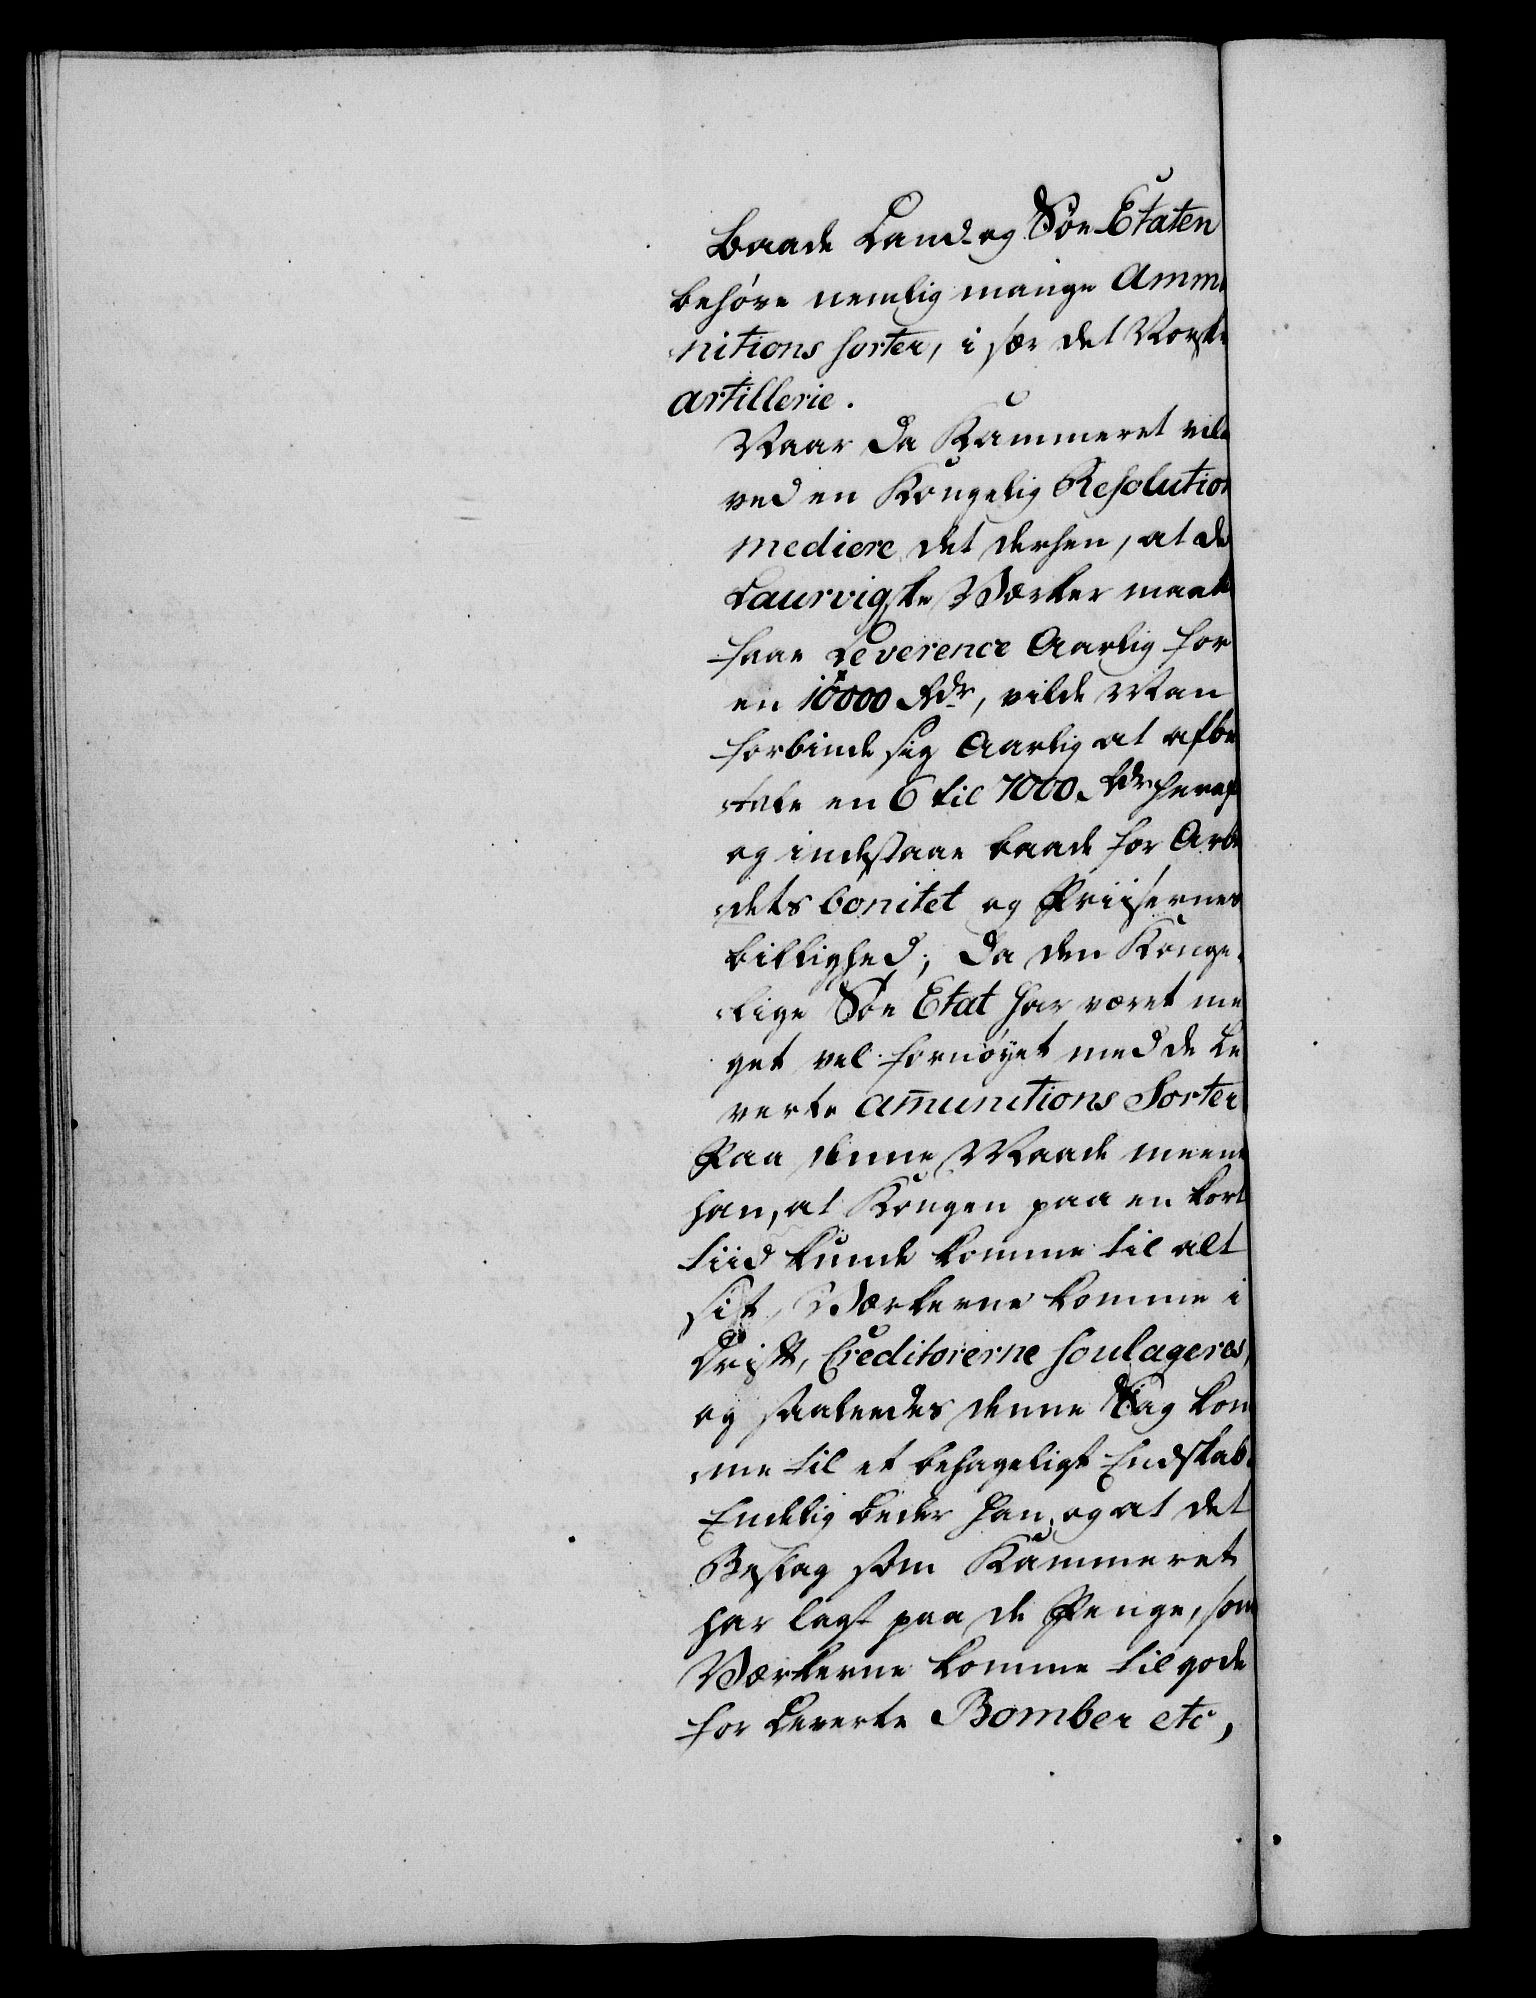 Baade Land og Søe Etaten
behøve nemlig mange Ammu
nitions sorter, i sær det Norske
artillerie.
Naar da Kammeret vilde
ved en Kongelig Resolution
mediere det derhen, at de
Laurvigske Værker maatte
faae Leverence Aarlig for
en 10000 Rdr, vilde Man
forbinde sig Aarlig at afbe
tale en 6 til 7000 Rdr heraf
og indestaae baade for Arbei
dets bonitet og Priisernes
billighed; da den Konge-
lige Søe Etat har været me
get vel fornøyet med de Le
verte amunitions Sorter
Paa denne Maade meente
han, at Kongen paa en kort
tiid kunde komme til alt
sit, Værkerne komme i
Drift, Creditorerne soulageres,
og saaleedes denne Sag kom
me til et behageligt Endskab.
Endelig beder han, og at det
Beslag som Kammeret
har lagt paa de Penge, som
Værkerne komme tilgode
for Leverte Bomber etc,